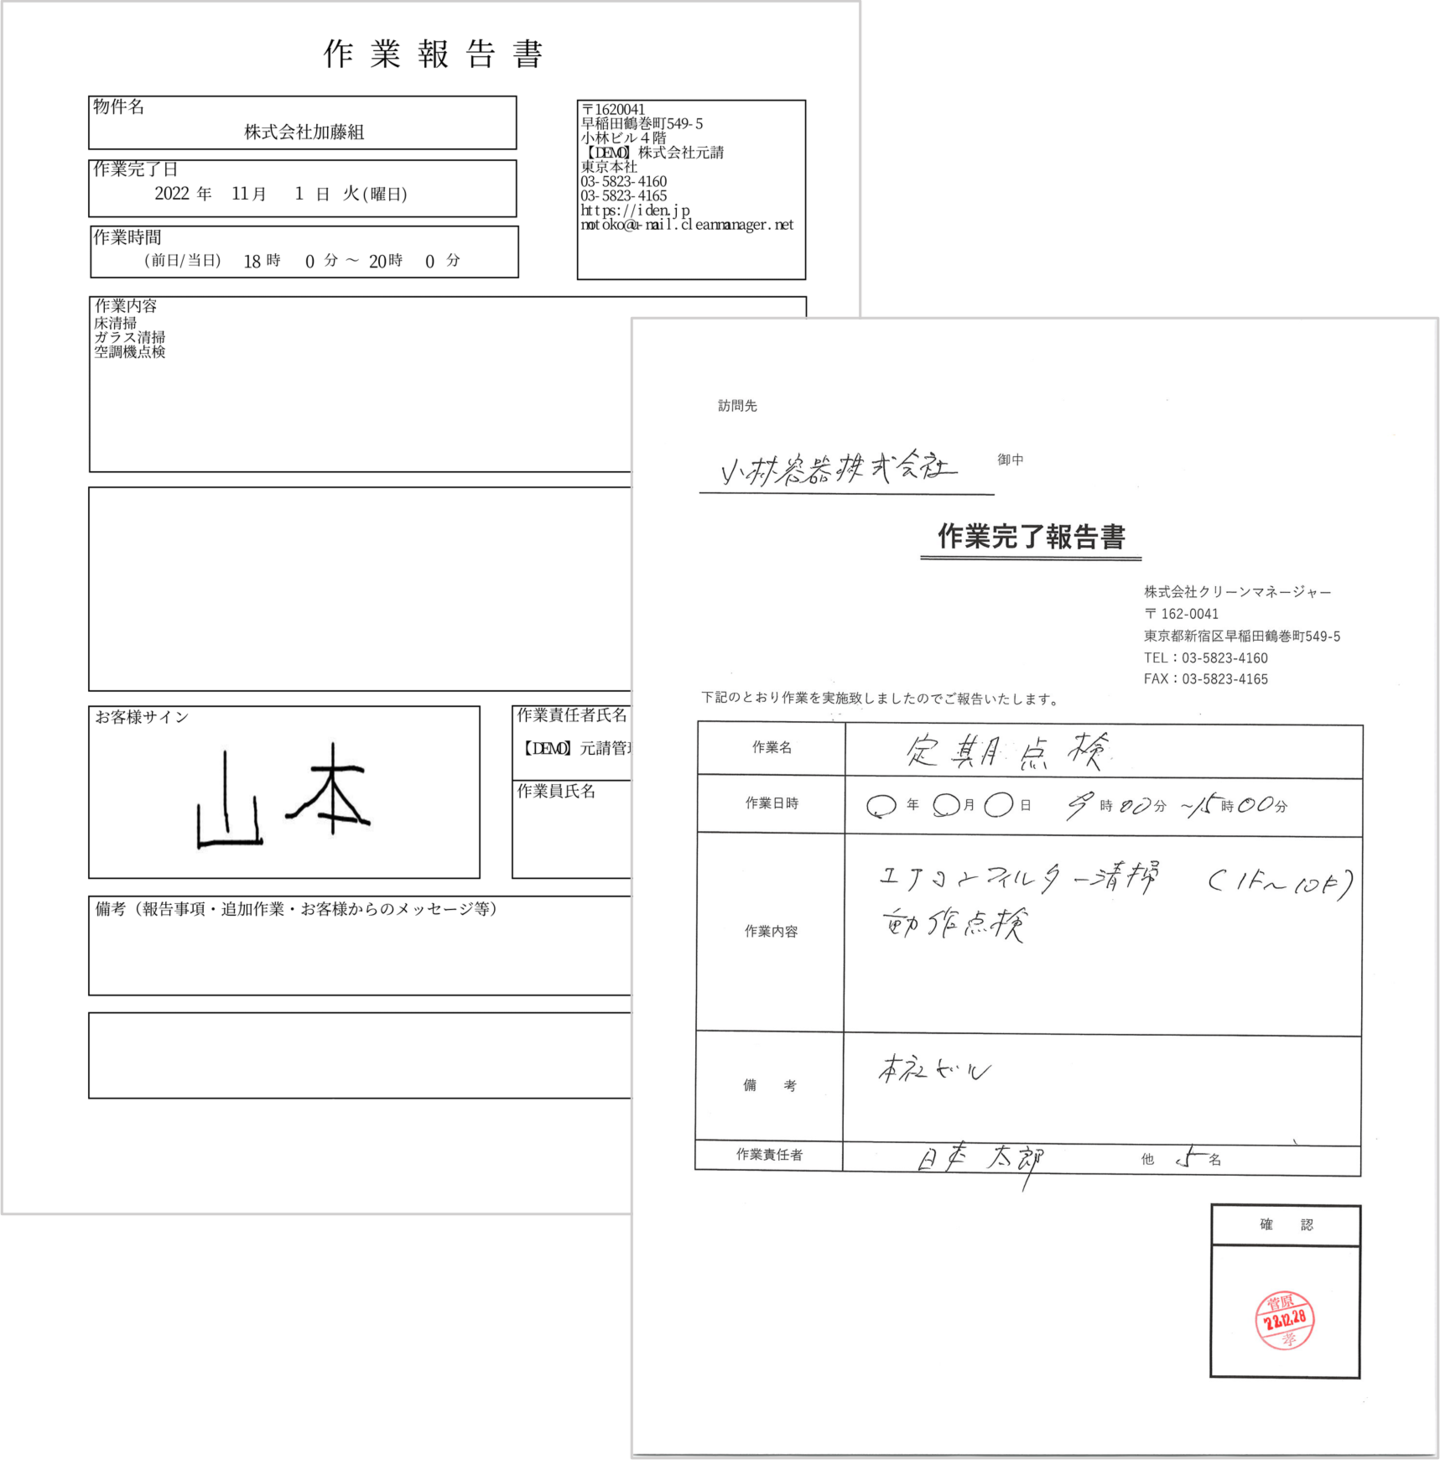 作業報告書
物件名
株式会社加藤組
作業完了日
2022 年 11月 1 日 火(曜日)
作業時間
(前日/当日) 18 時 0 分 ～ 20時 0 分
〒1620041
早稲田鶴巻町549-5
小林ビル４階
【DEMO】株式会社元請
東京本社
03-5823-4160
03-5823-4165
https://iden.jp
motoko@u-mail.cleanmanager.net
作業内容
床清掃
ガラス清掃
空調機点検
お客様サイン
山本
作業責任者氏名
【DEMO】元請管理
作業員氏名
備考（報告事項・追加作業・お客様からのメッセージ等）
訪問先
小林容器株式会社 御中
作業完了報告書
株式会社クリーンマネージャー
〒 162-0041
東京都新宿区早稲田鶴巻町549-5
TEL：03-5823-4160
FAX：03-5823-4165
下記のとおり作業を実施致しましたのでご報告いたします。
作業名 定期点検
作業日時 〇年〇月〇日 9時00分 ～15時00分
作業内容
エアコンフィルター清掃 (1F～10F)
動作点検
備考 本社ビル
作業責任者 日本 太郎 他 5 名
確認
菅原
'22.12.28
孝